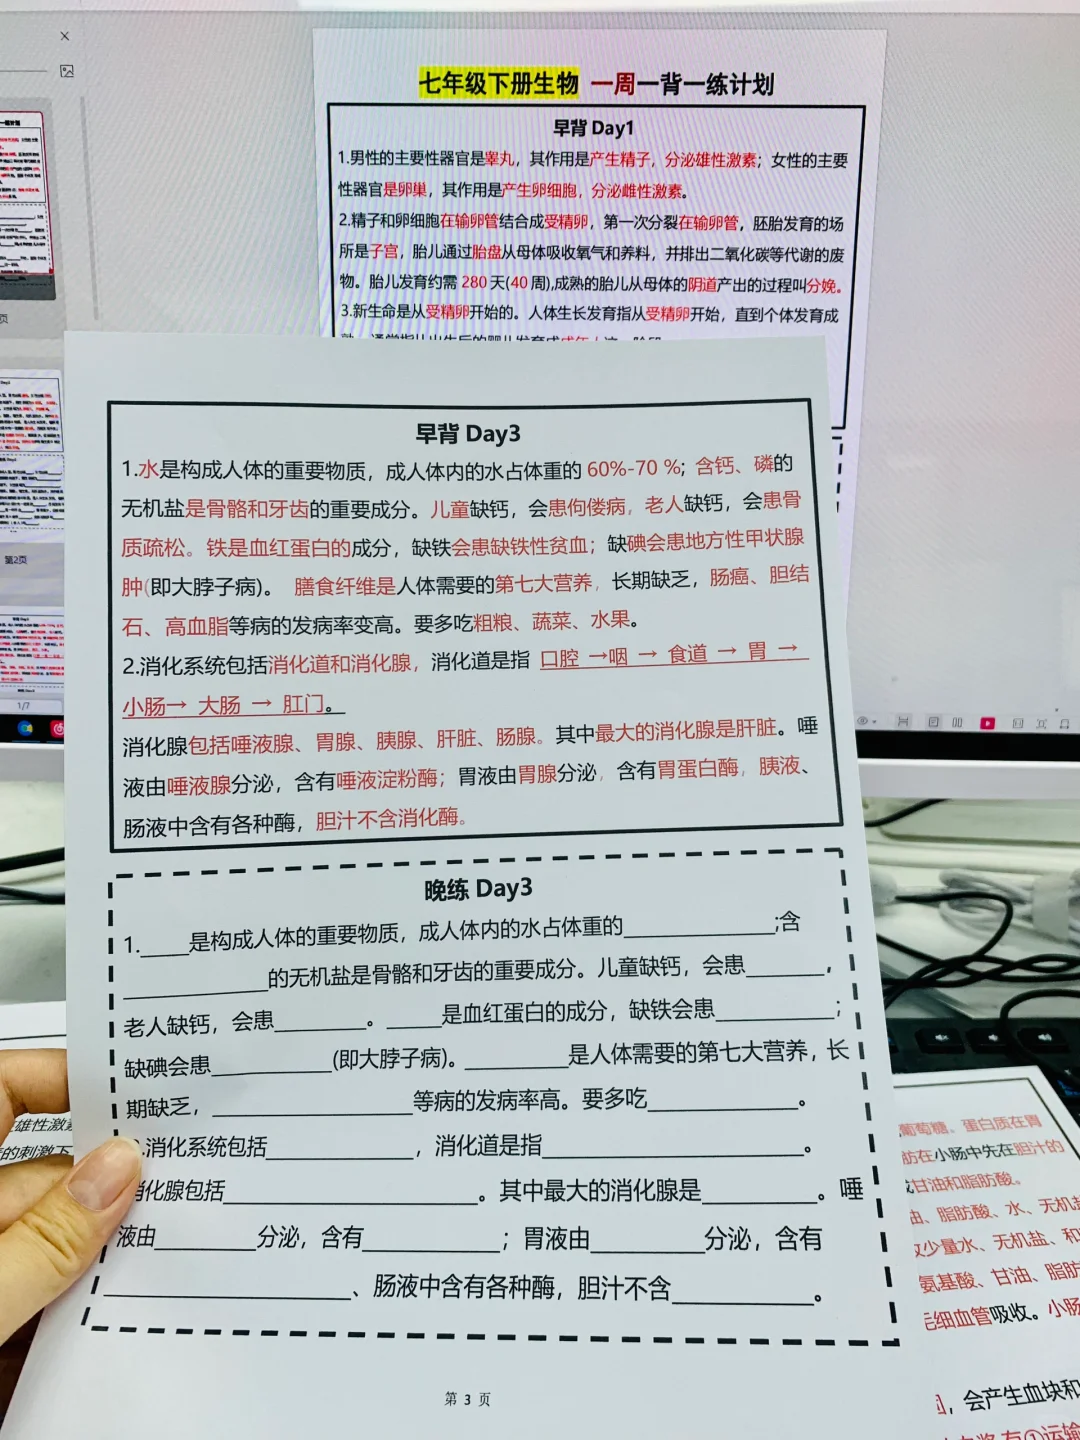 七年级下册生物 一周一背一练计划
早背 Day1
1.男性的主要性器官是睾丸，其作用是产生精子，分泌雄性激素；女性的主要
性器官是卵巢，其作用是产生卵细胞，分泌雌性激素。
2.精子和卵细胞在输卵管结合成受精卵，第一次分裂在输卵管，胚胎发育的场
所是子宫，胎儿通过胎盘从母体吸收氧气和养料，并排出二氧化碳等代谢的废
物。胎儿发育约需 280 天(40 周),成熟的胎儿从母体的阴道产出的过程叫分娩。
3.新生命是从受精卵开始的。人体生长发育指从受精卵开始，直到个体发育成
页
第2页
1/7
早背 Day3
1.水是构成人体的重要物质，成人体内的水占体重的 60%-70 %; 含钙、磷的
无机盐是骨骼和牙齿的重要成分。儿童缺钙，会患佝偻病，老人缺钙，会患骨
质疏松。铁是血红蛋白的成分，缺铁会患缺铁性贫血；缺碘会患地方性甲状腺
肿(即大脖子病)。 膳食纤维是人体需要的第七大营养，长期缺乏，肠癌、胆结
石、高血脂等病的发病率变高。要多吃粗粮、蔬菜、水果。
2.消化系统包括消化道和消化腺，消化道是指 口腔 →咽 → 食道 → 胃 →
小肠→ 大肠 → 肛门。
消化腺包括唾液腺、胃腺、胰腺、肝脏、肠腺。其中最大的消化腺是肝脏。唾
液由唾液腺分泌，含有唾液淀粉酶；胃液由胃腺分泌，含有胃蛋白酶，胰液、
肠液中含有各种酶，胆汁不含消化酶。
晚练 Day3
1.____是构成人体的重要物质，成人体内的水占体重的____________;含
____________的无机盐是骨骼和牙齿的重要成分。儿童缺钙，会患_______，
老人缺钙，会患________。_____是血红蛋白的成分，缺铁会患__________；
缺碘会患__________(即大脖子病)。_________是人体需要的第七大营养，长
期缺乏，________________等病的发病率高。要多吃____________。
.消化系统包括____________，消化道是指_____________________。
消化腺包括____________________。其中最大的消化腺是_________。唾
液由________分泌，含有___________；胃液由_________分泌，含有
____________________、肠液中含有各种酶，胆汁不含___________。
第 3 页
雄性激
的刺激下
葡萄糖。蛋白质在胃
肪在小肠中先在胆汁的
甘油和脂肪酸。
油、脂肪酸、水、无机盐
少量水、无机盐、和
氨基酸、甘油、脂肪
毛细血管吸收。小肠
，会产生血块和
有①运输